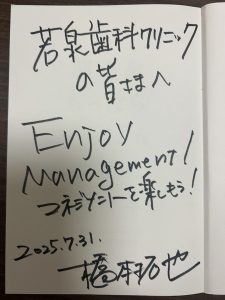 若泉歯科クリニック
の皆さまへ
Enjoy
Management!
マネジメントを楽しもう!
2025.7.31.
橋本拓也